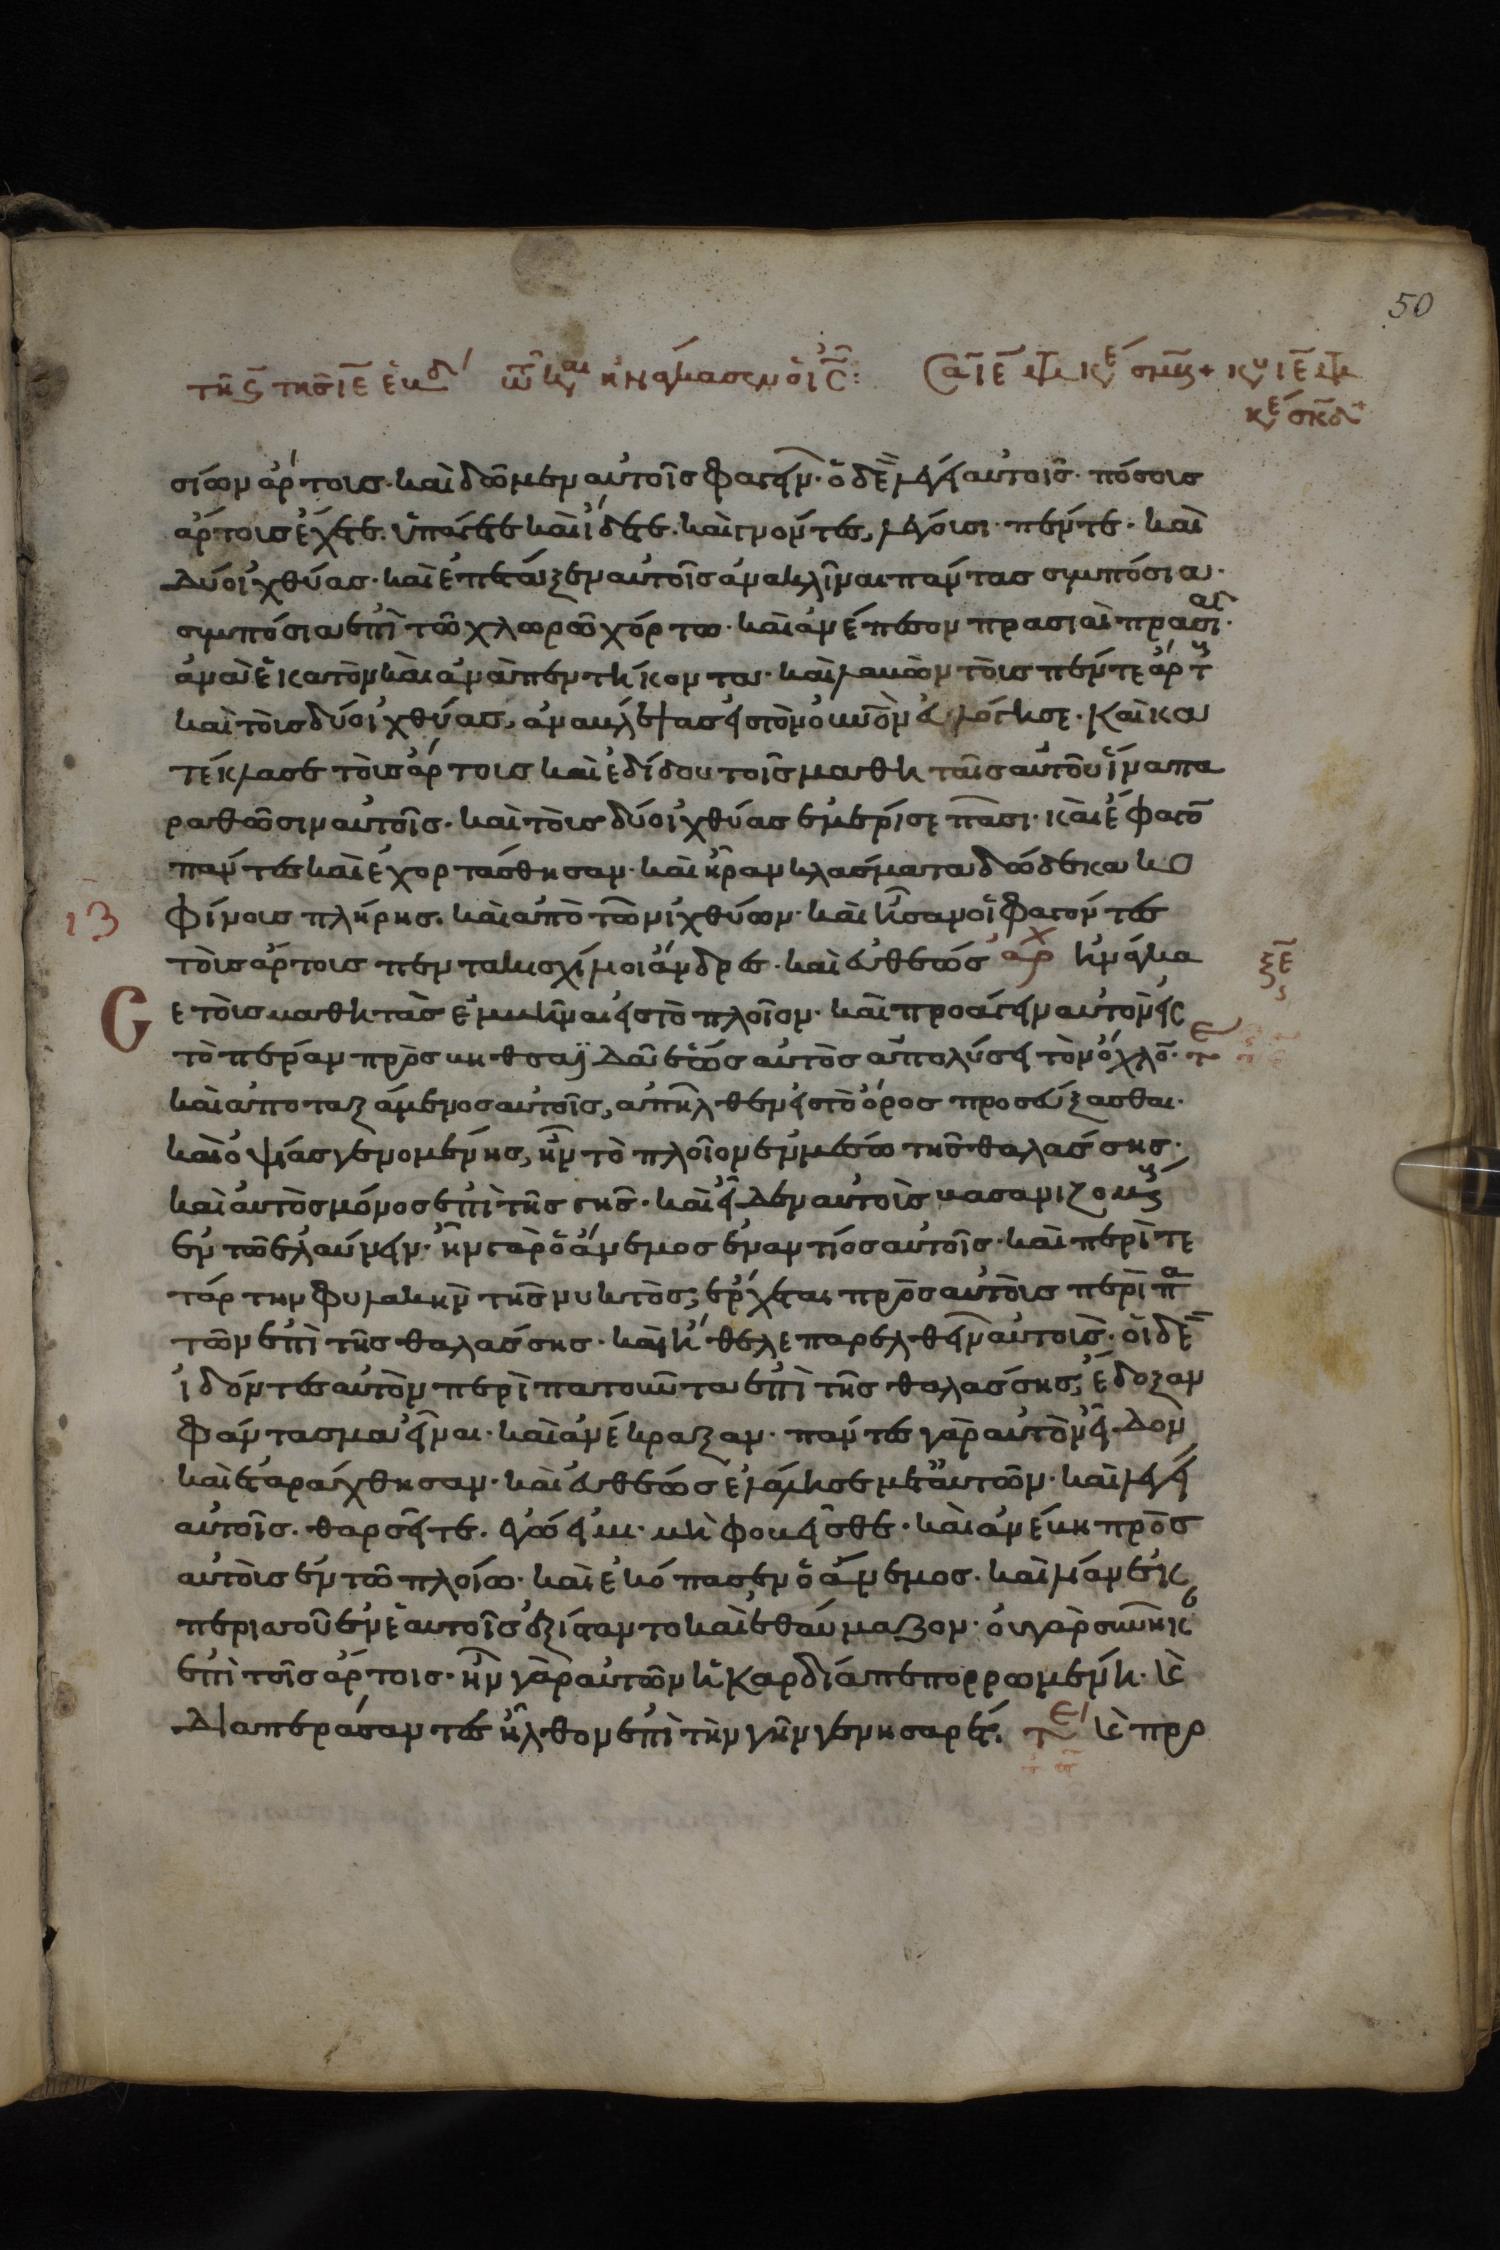 50
τῆ ϛ τῆς ιε ἑβδ τω και ηναγκασεν ὁ ις
σίων ἄρτους· καὶ δῶμεν αὐτοῖς φαγεῖν· ὁ δὲ λέγει αὐτοῖς· πόσους
ἄρτους ἔχετε. ὑπάγετε καὶ ἴδετε. καὶ γνόντες, λέγουσι· πέντε· καὶ
δύο ἰχθύας· καὶ ἐπέταξεν αὐτοῖς ἀνακλῖναι πάντας συμπόσια·
συμπόσια ἐπὶ τῶ χλωρῶ χόρτω· καὶ ἀνέπεσον πρασιαὶ πρασιαὶ·
ἀνὰ ἑκατὸν καὶ ἀνὰ πεντήκοντα· καὶ λαβὼν τοὺς πέντε ἄρτ
καὶ τοὺς δύο ἰχθύας, ἀναβλέψας εἰς τὸν οὐνὸν εὐλόγησε· καὶ κα
τέκλασε τοὺς ἄρτους καὶ ἐδίδου τοῖς μαθηταῖς αὐτοῦ ἵνα πα
ραθῶσιν αὐτοῖς· καὶ τοὺς δύο ἰχθύας ἐμέρισε πᾶσι· καὶ ἔφαγο
πάντες καὶ ἐχορτάσθησαν· καὶ ἦραν κλασμάτα δώδεκα κο
φίνους πλήρης. καὶ ἀπὸ τῶν ἰχθύων· καὶ ἦσαν οἱ φαγόντες
τοὺς ἄρτους πεντακισχίλιοι ἄνδρες· καὶ εὐθέως αρχ ἠνάγκα
ξε
σε τοὺς μαθητὰς ἐμβῆναι εἰς τὸ πλοῖον· καὶ προάγειν αὐτὸν εἰς
τὸ πέραν πρὸς βηθσαϊδὰ ἕως αὐτὸς ἀπολύσει τὸν ὄχλο· τε
καὶ ἀποταξάμενος αὐτοῖς, ἀπῆλθεν εἰς τὸ ὄρος προσεύξασθαι·
καὶ ὀψίας γενομένης, ἦν τὸ πλοῖον ἐν μέσω τῆς θαλάσσης·
καὶ αὐτὸς μόνος ἐπὶ τῆς γῆς· καὶ εἶδεν αὐτοὺς βασανιζομ
ἐν τῶ ἐλαύνειν· ἦν γὰρ ὁ ἄνεμος ἐναντίος αὐτοῖς· καὶ περὶ τε
τάρτην φυλακὴν τῆς νυκτὸς, ἔρχεται πρὸς αὐτοὺς περὶ πα
τῶν ἐπὶ τῆς θαλάσσης· καὶ ἤθελε παρελθεῖν αὐτοὺς· οἱ δὲ
ἰδόντες αὐτὸν περὶπατοῦντα ἐπὶ τῆς θαλάσσης, ἔδοξαν
φάντασμα εἶναι· καὶ ἀνέκραξαν· πάντες γὰρ αὐτὸν εἶδον
καὶ ἐταράχθησαν· καὶ εὐθέως ἐλάλησε μετ αὐτῶν· καὶ λέγει
αὐτοῖς. θαρσεῖτε. ἐγώ εἰμι· μὴ φοβεῖσθε· καὶ ἀνέβη πρὸς
αὐτοὺς ἐν τῶ πλοίω· καὶ ἐκόπασεν ὁ ἄνεμος. καὶ λίαν ἐκ
περισσοῦ ἐν ἑαυτοῖς ἐξίσταντο καὶ ἐθαύμαζον· οὐ γὰρ συνῆκ
ἐπὶ τοῖς ἄρτοις· ἦν γὰρ αὐτῶν ἡ καρδία πεπορρωμένη· κὲ
διαπεράσαντες ἦλθον ἐπὶ τὴν γῆν γενησαρέτ. τε κὲ προ